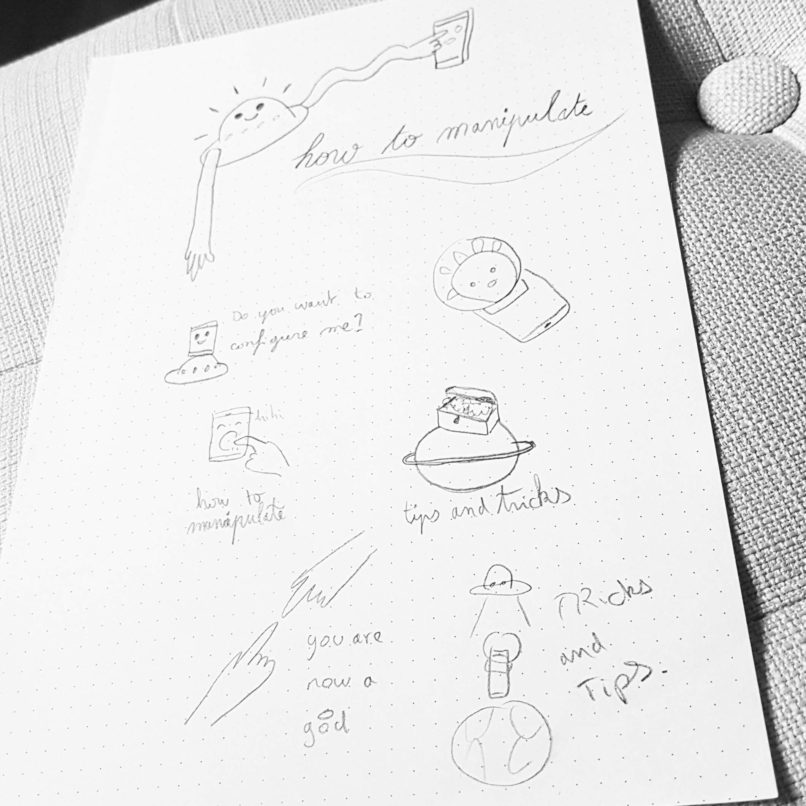 how to manipulate
Do you want to
configure me?
hihi
how to
manipulate
tips and tricks
you are
now a
god
Tricks
and
Tips.